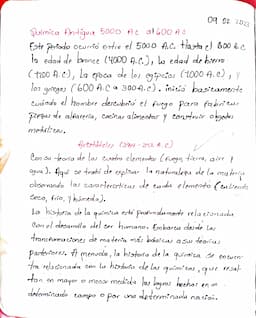 09.02.2023
Química Antigua 5000 A.C al 600 A.C
Este Periodo ocurrió entre el 5000 A.C. Hasta el 600 A.C
la edad de bronce (4000 A.C.), la edad de hierro
(1200 A.C.), la época de los egipcios (1000 A.C.), y
los griegos (600 A.C a 300 A.C). inició basicamente
cuando el Hombre descubrió el fuego para fabricar
piezas de alfarería, cocinar alimentos y construir objetos
metálicos.
Aristóteles
Con su teoría de los cuatro elementos (fuego, tierra, aire y
agua). Aquí se trató de explicar la naturaleza de la materia
observando las características de cada elemento (caliente
Seco, frío, y húmedo).
La historia de la química está profundamente relacionada
con el desarrollo del ser humano. Embarca desde las
transformaciones de materia más básicas a su teorías
posteriores. A menudo, la historia de la química se encuen-
tra relacionada con la historia de los químicos, que resal-
tan en mayor o menor medida los logros hechos en un
determinado campo o por una determinada nación.